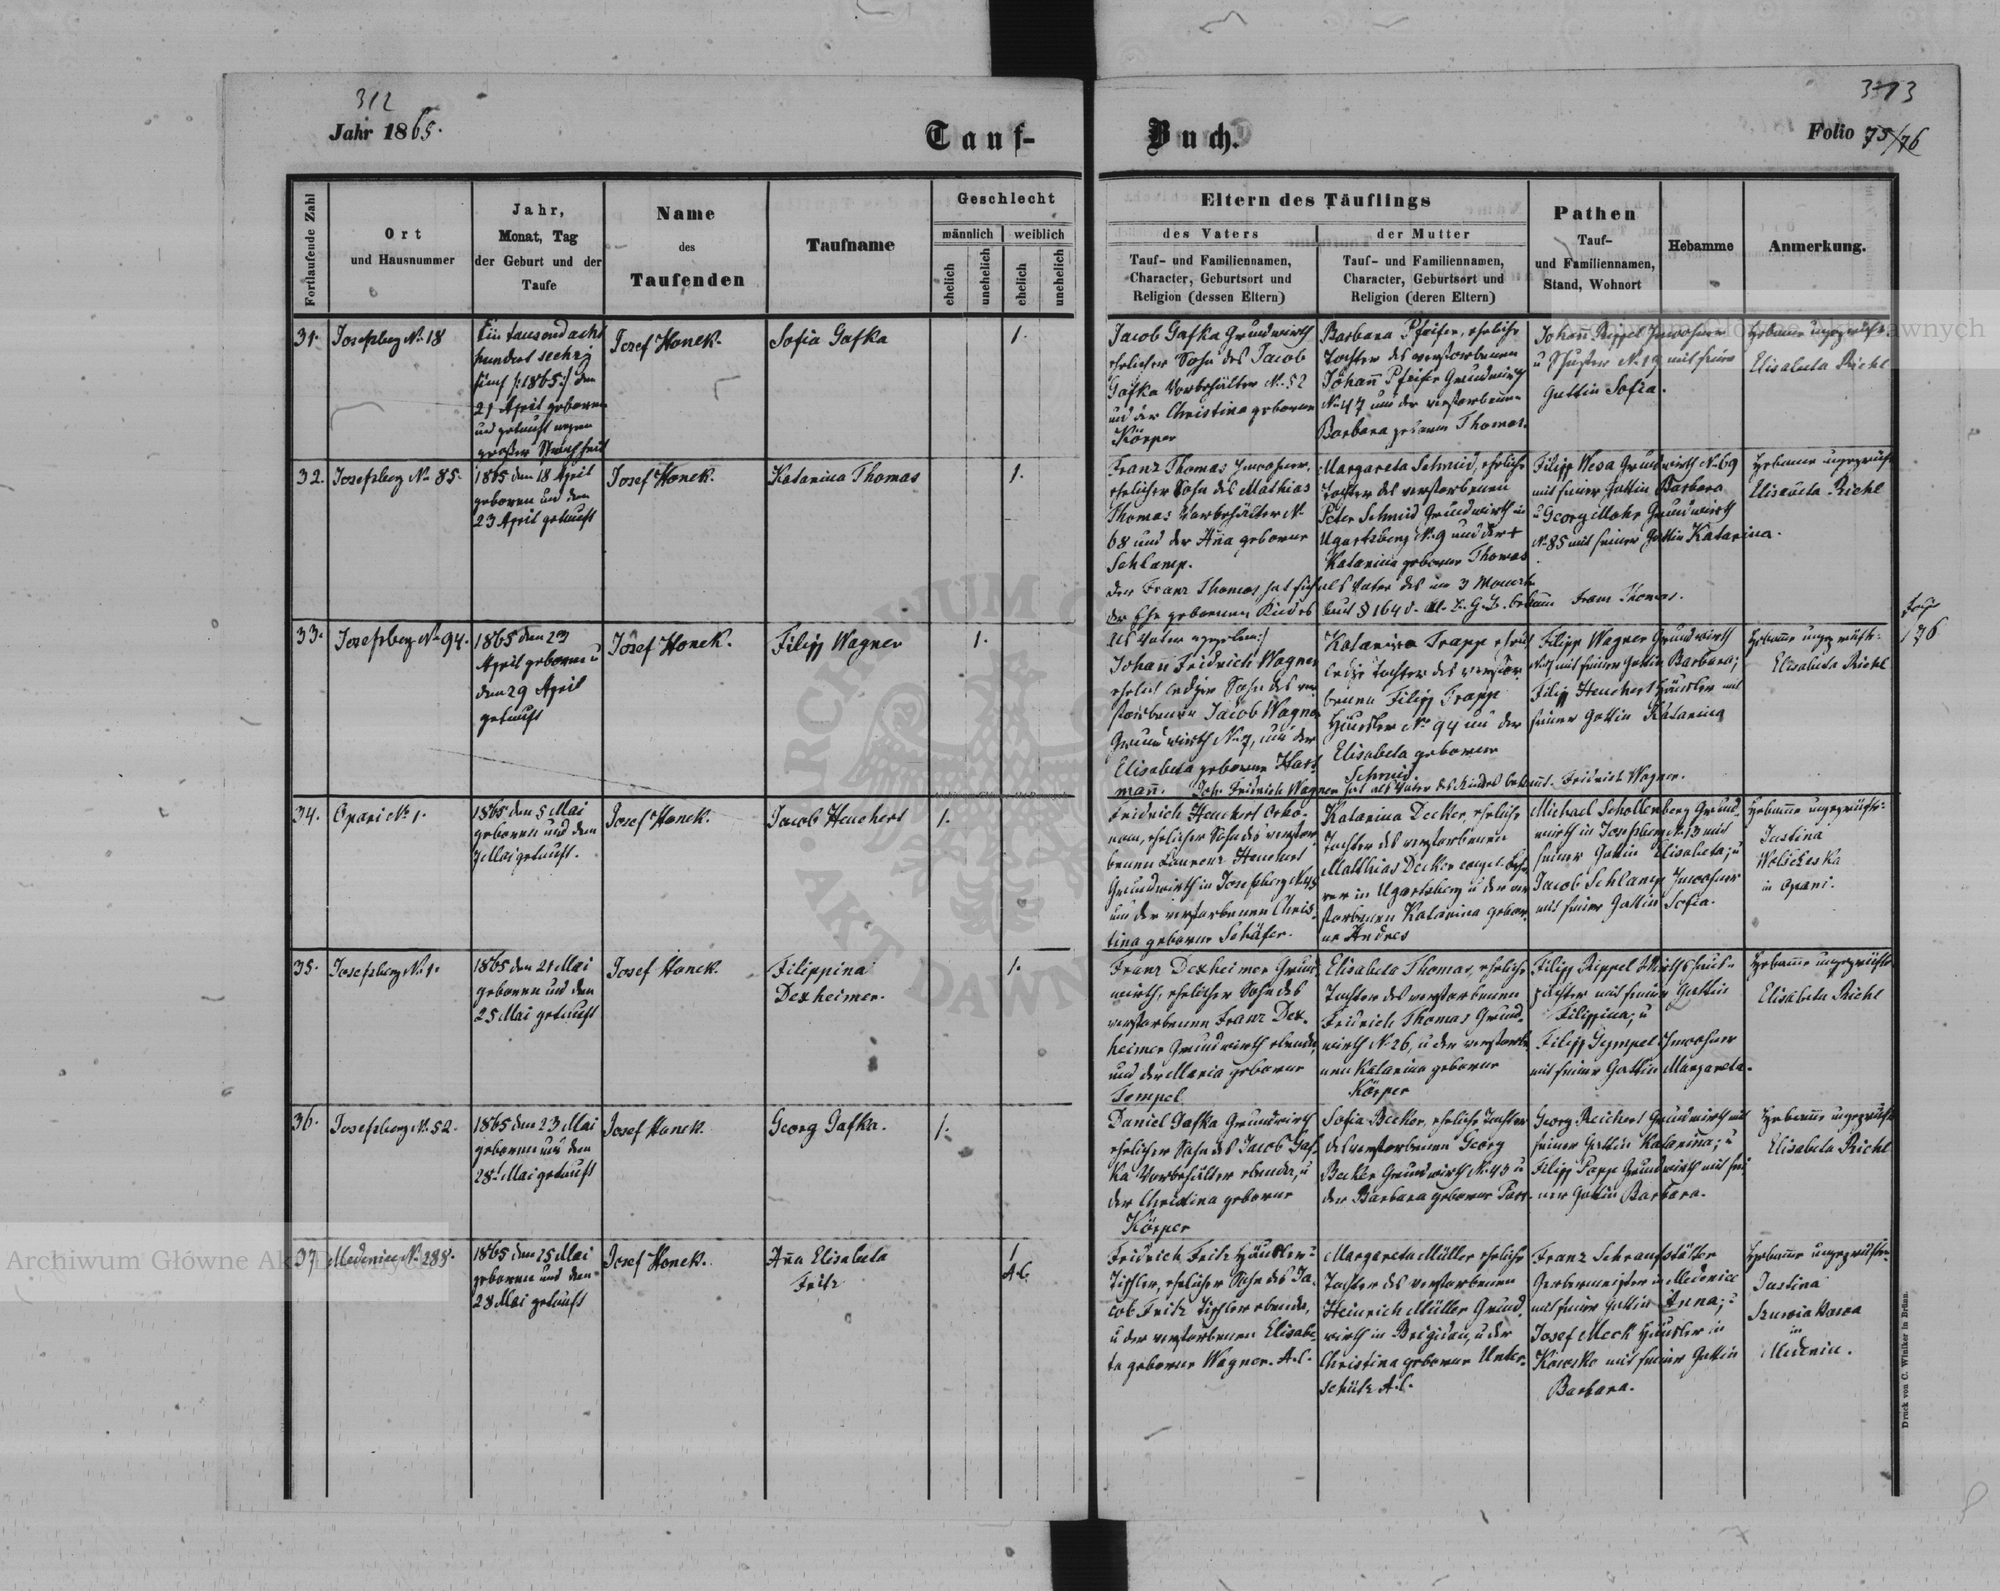 312
Jahr 1865.
Tauf-
Buch.
3713
Folio 75/76
Fortlaufende Zahl
Ort
und Hausnummer
Jahr,
Monat, Tag
der Geburt und der
Taufe
Name
des
Taufenden
Taufname
Geschlecht
männlich
weiblich
ehelich
unehelich
ehelich
unehelich
Eltern des Täuflings
des Vaters
Tauf- und Familiennamen,
Character, Geburtsort und
Religion (dessen Eltern)
der Mutter
Tauf- und Familiennamen,
Character, Geburtsort und
Religion (deren Eltern)
Pathen
Tauf-
und Familiennamen,
Stand, Wohnort
Hebamme
Anmerkung.
31.
Josefsberg No 18
Ein tausend acht
hundert sechzig
fünf /:1865:/ den
21 April geboren
und getauft wegen
großer Schwachheit
Josef Honek.
Sofia Gafka
1.
Jacob Gafka Grundwirth
ehelicher Sohn des Jacob
Gafka Vorbehälter No. 52
und der Christina geborne
Körper
Barbara Pfeifer, eheliche
Tochter des verstorbenen
Johann Pfeifer Grundwirth
No 47 und der verstorbenen
Barbara geborne Thomas.
Johann Rippel Inwohner
u Schuster No 19 mit seiner
Gattin Sofia.
Hebamme ungeprüft.
Elisabeta Richl
32.
Josefsberg No 85.
1865 den 18 April
geboren und den
23 April getauft
Josef Honek.
Katarina Thomas
1.
Franz Thomas Inwohner,
ehelicher Sohn des Mathias
Thomas Vorbehälter No
68 und der Anna geborne
Schlamp.
Margareta Schmid, eheliche
Tochter des verstorbenen
Peter Schmid Grundwirth in
Ugartsberg No. 9 und der +
Katarina geborne Thomas
Filipp Wesa Grundwirth No 69
mit seiner Gattin Barbara
u Georg Mohr Grundwirth
No 85 mit seiner Gattin Katarina.
Hebamme ungeprüft
Elisabeta Richl
der Franz Thomas hat sich als Vater des um 3 Monate
der Ehe gebornen Kindes laut § 164 d. A. b. G. B. bekannt Franz Thomas.
33.
Josefsberg No 94.
1865 den 23
April geboren u
den 29 April
getauft
Josef Honek.
Filipp Wagner
1.
Johann Fridrich Wagner
lediger Sohn des ver
storbenen Jacob Wagner
Grundwirth No 7, und der
Elisabeta geborne Hart
mann.
Katarina Trapp
ledige Tochter des verstor
benen Filipp Trapp
Häusler No 94 und der
Elisabeta geborne
Schmid
Filipp Wagner Grundwirth
mit seiner Gattin Barbara;
Filipp Heuchert Häusler mit
seiner Gattin Katarina
Hebamme ungeprüft:
Elisabeta Richl
Joh. Fridrich Wagner hat als Vater des Kindes bekannt. Fridrich Wagner.
176
34.
Opari No 1.
1865 den 5 Mai
geboren und den
7 Mai getauft.
Josef Honek.
Jacob Heuchert
1.
Fridrich Heuchert Oeko-
nom, ehelicher Sohn des verstor
benen Laurenz Heuchert
Grundwirth in Josefsberg
und der verstorbenen Chris-
tina geborne Schäfer.
Katarina Decker, eheliche
Tochter des verstorbenen
Matthias Decker
in Ugartsberg u der ver
storbenen Katarina gebor
ne Andres
Michael Schollenberg Grund
wirth in Josefsberg No 13 mit
seiner Gattin Elisabeta; u
Jacob Schlamp Inwohner
mit seiner Gattin Sofia.
Hebamme ungeprüft:
Justina
Wolicheska
in Opari.
35.
Josefsberg No 1.
1865 den 21 Mai
geboren und den
25 Mai getauft
Josef Honek.
Filippina
Dexheimer.
1.
Franz Dexheimer Grund
wirth, ehelicher Sohn des
verstorbenen Franz Dex.
heimer Grundwirth ebenda,
und der Maria geborne
Tempel
Elisabeta Thomas, eheliche
Tochter des verstorbenen
Fridrich Thomas Grund-
wirth No 26, u der verstorbe
nen Katarina geborne
Körper
Filipp Rippel Wirthshaus-
pächter mit seiner Gattin
Filippina; u
Filipp Gympel Inwohner
mit seiner Gattin Margareta.
Hebamme ungeprüft
Elisabeta Richl
36.
Josefsberg No. 52.
1865 den 23 Mai
geboren und den
28. Mai getauft
Josef Honek.
Georg Gafka.
1.
Daniel Gafka Grundwirth
ehelicher Sohn des Jacob Gaf
ka Vorbehälter ebenda, u
der Christina geborne
Körper
Sofia Becker, eheliche Tochter
des verstorbenen Georg
Becker Grundwirth No. 43 u
der Barbara geborne
Georg Reichert Grundwirth mit
seiner Gattin Katarina; u
Filipp Papp Grundwirth mit sei
ner Gattin Barbara.
Hebamme ungeprüft
Elisabeta Richl
37
Medenice No 288.
1865 den 25 Mai
geboren und den
28 Mai getauft
Josef Honek.
Anna Elisabeta
Fritz
1
A.C.
Fridrich Fritz Häusler
Tischler, ehelicher Sohn des Ja
cob Fritz Tischler ebenda,
u der verstorbenen Elisabe
ta geborne Wagner. A.C.
Margareta Müller eheliche
Tochter des verstorbenen
Heinrich Müller Grund
wirth in Brigidau, u der
Christina geborne Unter
schütz A.C.
Franz Schraufstätter
Gerbermeister in Medenice
mit seiner Gattin Anna; u
Josef Meck Häusler in
mit seiner Gattin
Barbara.
Hebamme ungeprüft
Justina
in
Medenice.
Druck von C. Winiker in Brünn.
Archiwum Główne Akt Dawnych
Archiwum Główne Akt Dawnych
ARCHIWUM GŁÓWNE AKT DAWNYCH